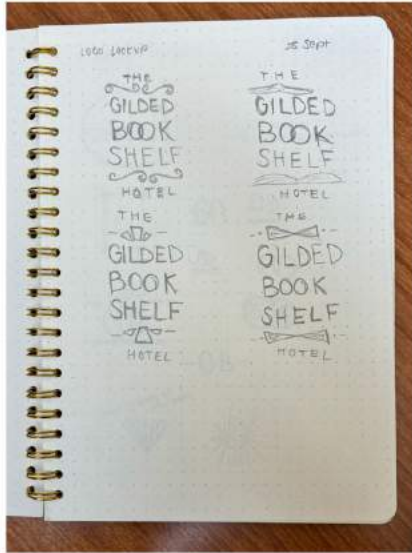 LOGO LOCKUP
25 Sept
THE
GILDED
BOOK
SHELF
HOTEL
THE
GILDED
BOOK
SHELF
HOTEL
THE
GILDED
BOOK
SHELF
HOTEL
THE
GILDED
BOOK
SHELF
HOTEL